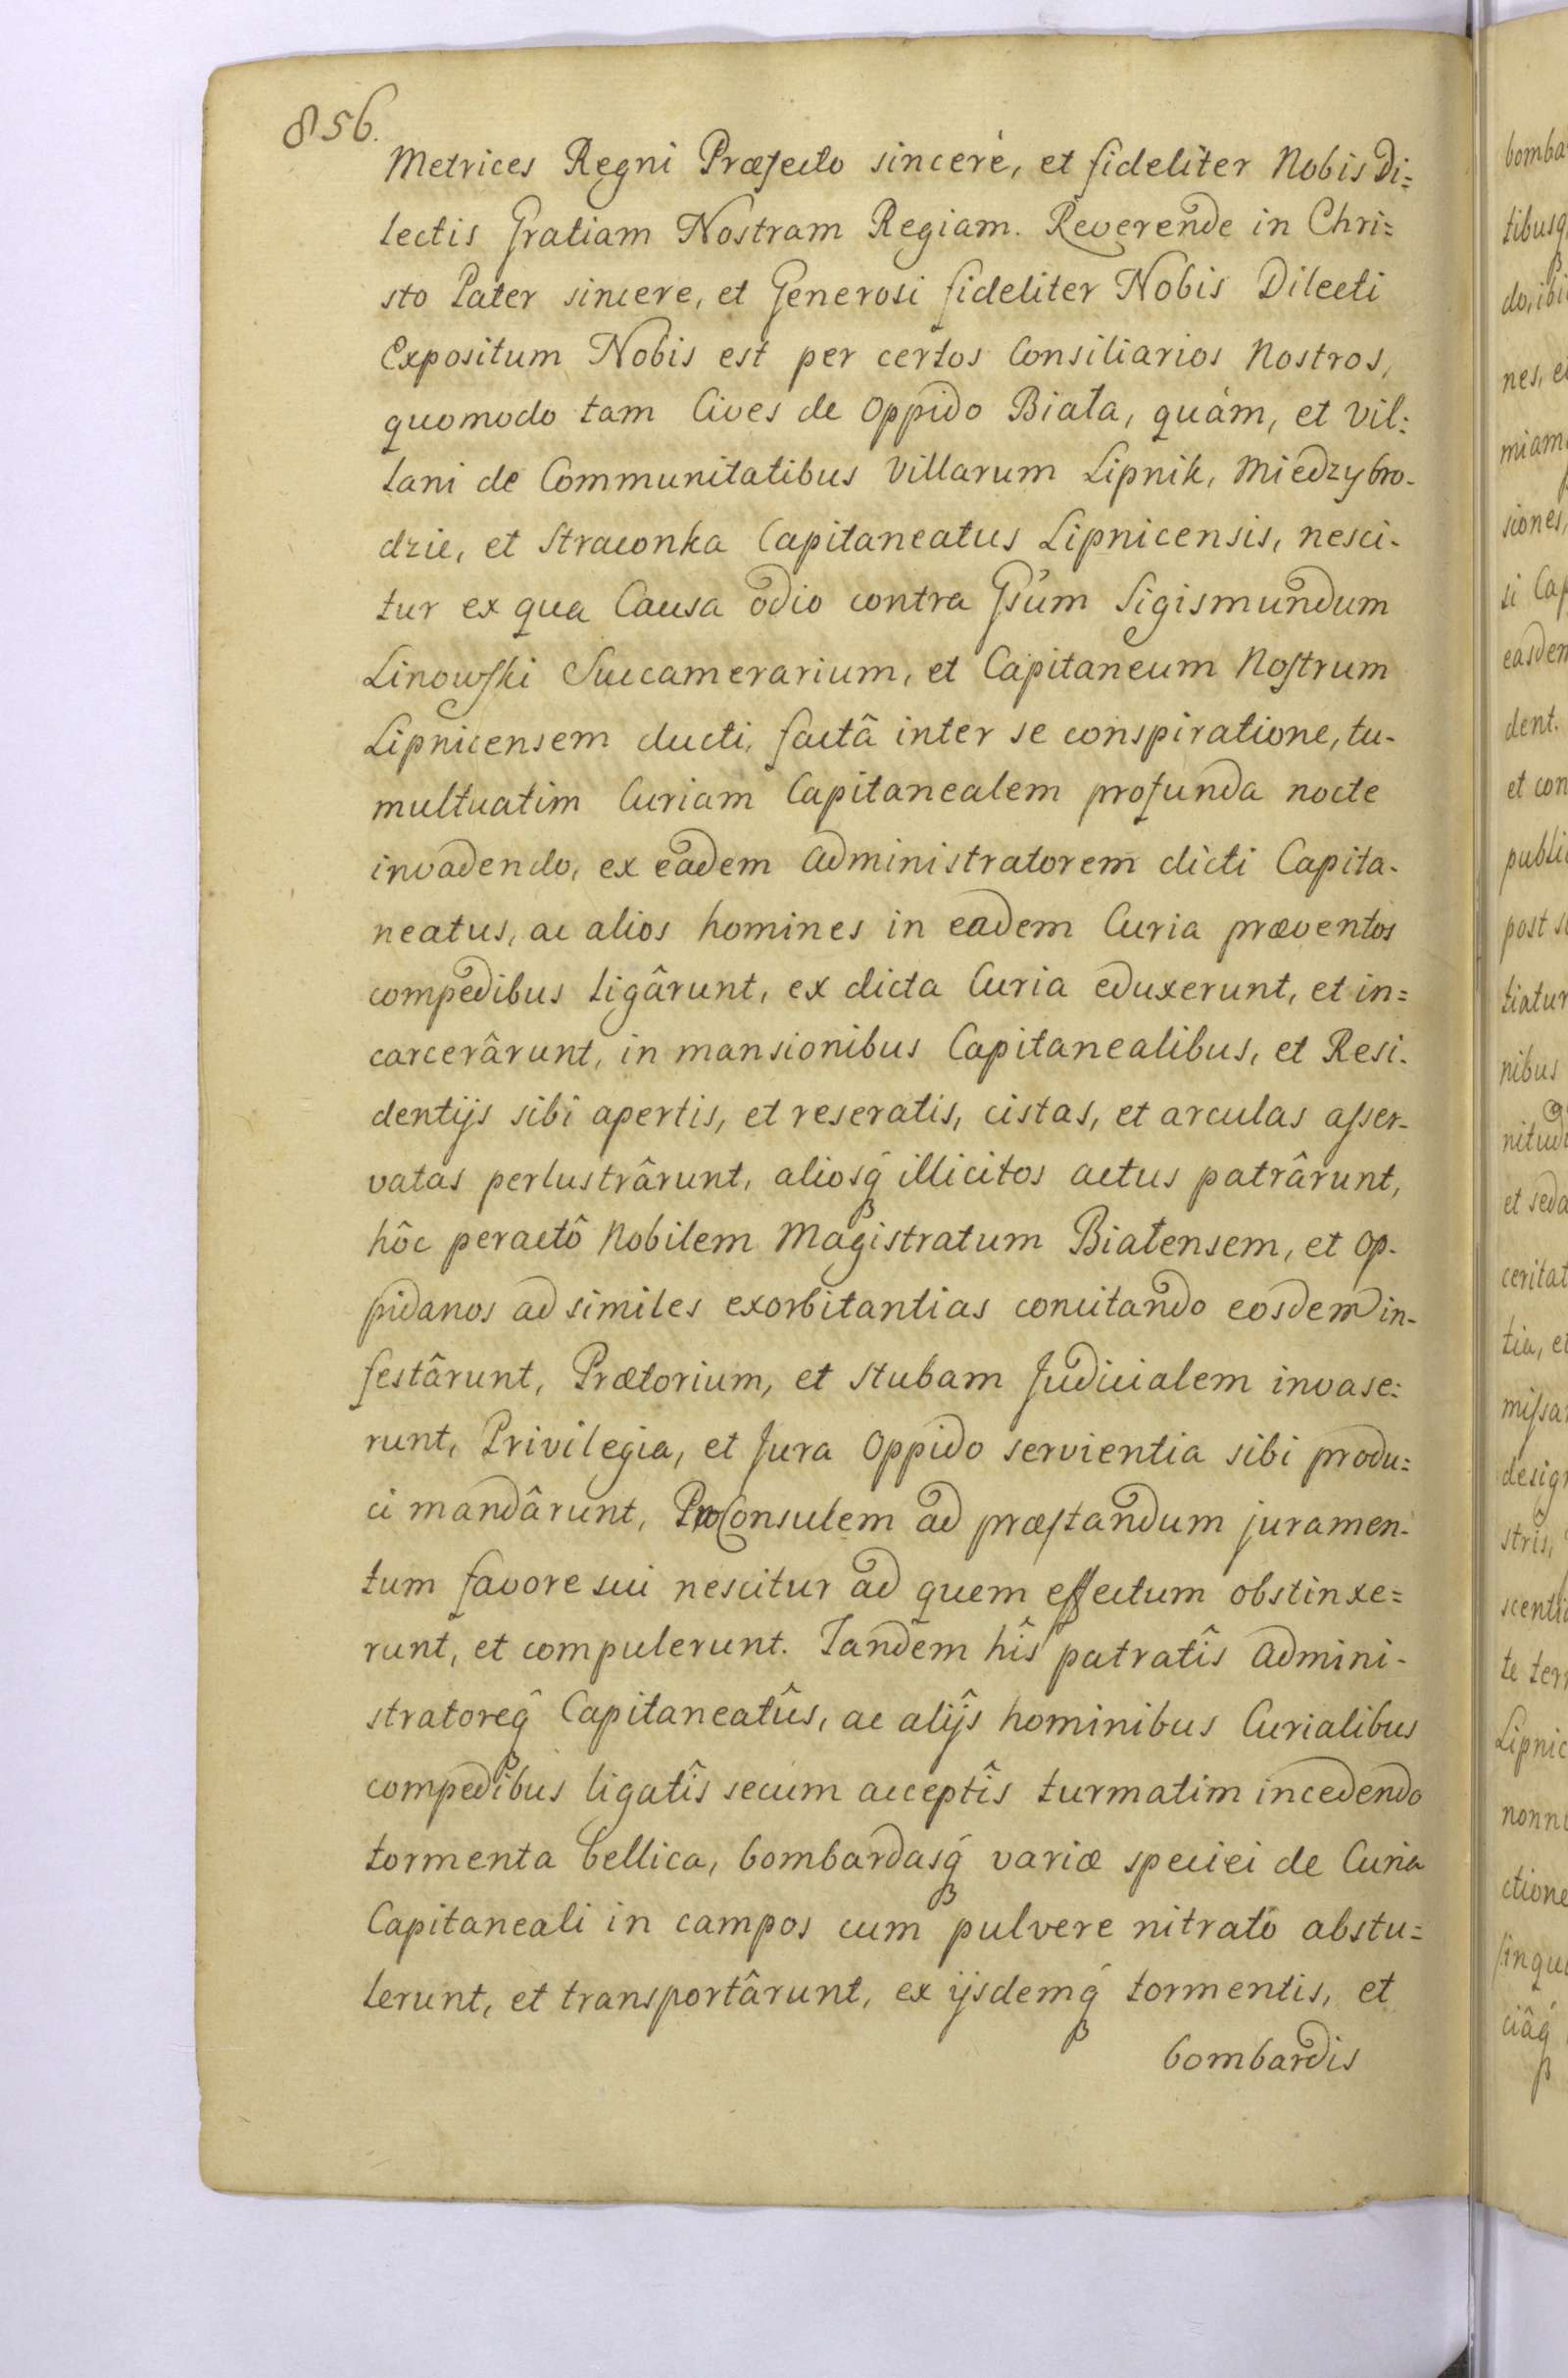 856.
Metrices Regni Præfecto sincerè, et fideliter Nobis Di=
lectis Gratiam Nostram Regiam. Reverende in Chri=
sto Pater sincere, et Generosi fideliter Nobis Dilecti
Expositum Nobis est per certos Consiliarios Nostros,
quomodo tam Cives de Oppido Biała, quàm, et Vil=
lani de Communitatibus Villarum Lipnik, Miedzybro-
dzie, et Straconka Capitaneatus Lipnicensis, nesci-
tur ex qua Causa odio contra Gsum Sigismundum
Linowski Succamerarium, et Capitaneum Nostrum
Lipnicensem ducti, factâ inter se conspiratione, tu-
multuatim Curiam Capitanealem profunda nocte
invadendo, ex eadem Administratorem dicti Capita-
neatus, ac alios homines in eadem Curia præventos
compedibus ligârunt, ex dicta Curia eduxerunt, et in=
carcerârunt, in mansionibus Capitanealibus, et Resi-
dentijs sibi apertis, et reseratis, cistas, et arculas asser-
vatas perlustrârunt, aliosq́ illicitos actus patrârunt,
hôc peractô Nobilem Magistratum Bialensem, et Op-
pidanos ad similes exorbitantias concitando eosdem in-
festârunt, Prætorium, et Stubam Judicialem invase=
runt, Privilegia, et Jura Oppido servientia sibi produ=
ci mandârunt, ProConsulem ad præstandum juramen-
tum favore sui nescitur ad quem effectum obstinxe=
runt, et compulerunt. Tandem hîs patratîs Admini-
stratoreq̂ Capitaneatûs, ac alijs hominibus Curialibus
compedibus ligatîs secum acceptîs turmatim incedendo
tormenta bellica, bombardasq́ variæ speciei de Curia
Capitaneali in campos cum pulvere nitratô abstu=
lerunt, et transportârunt, ex ijsdemq́ tormentis, et
bombardis